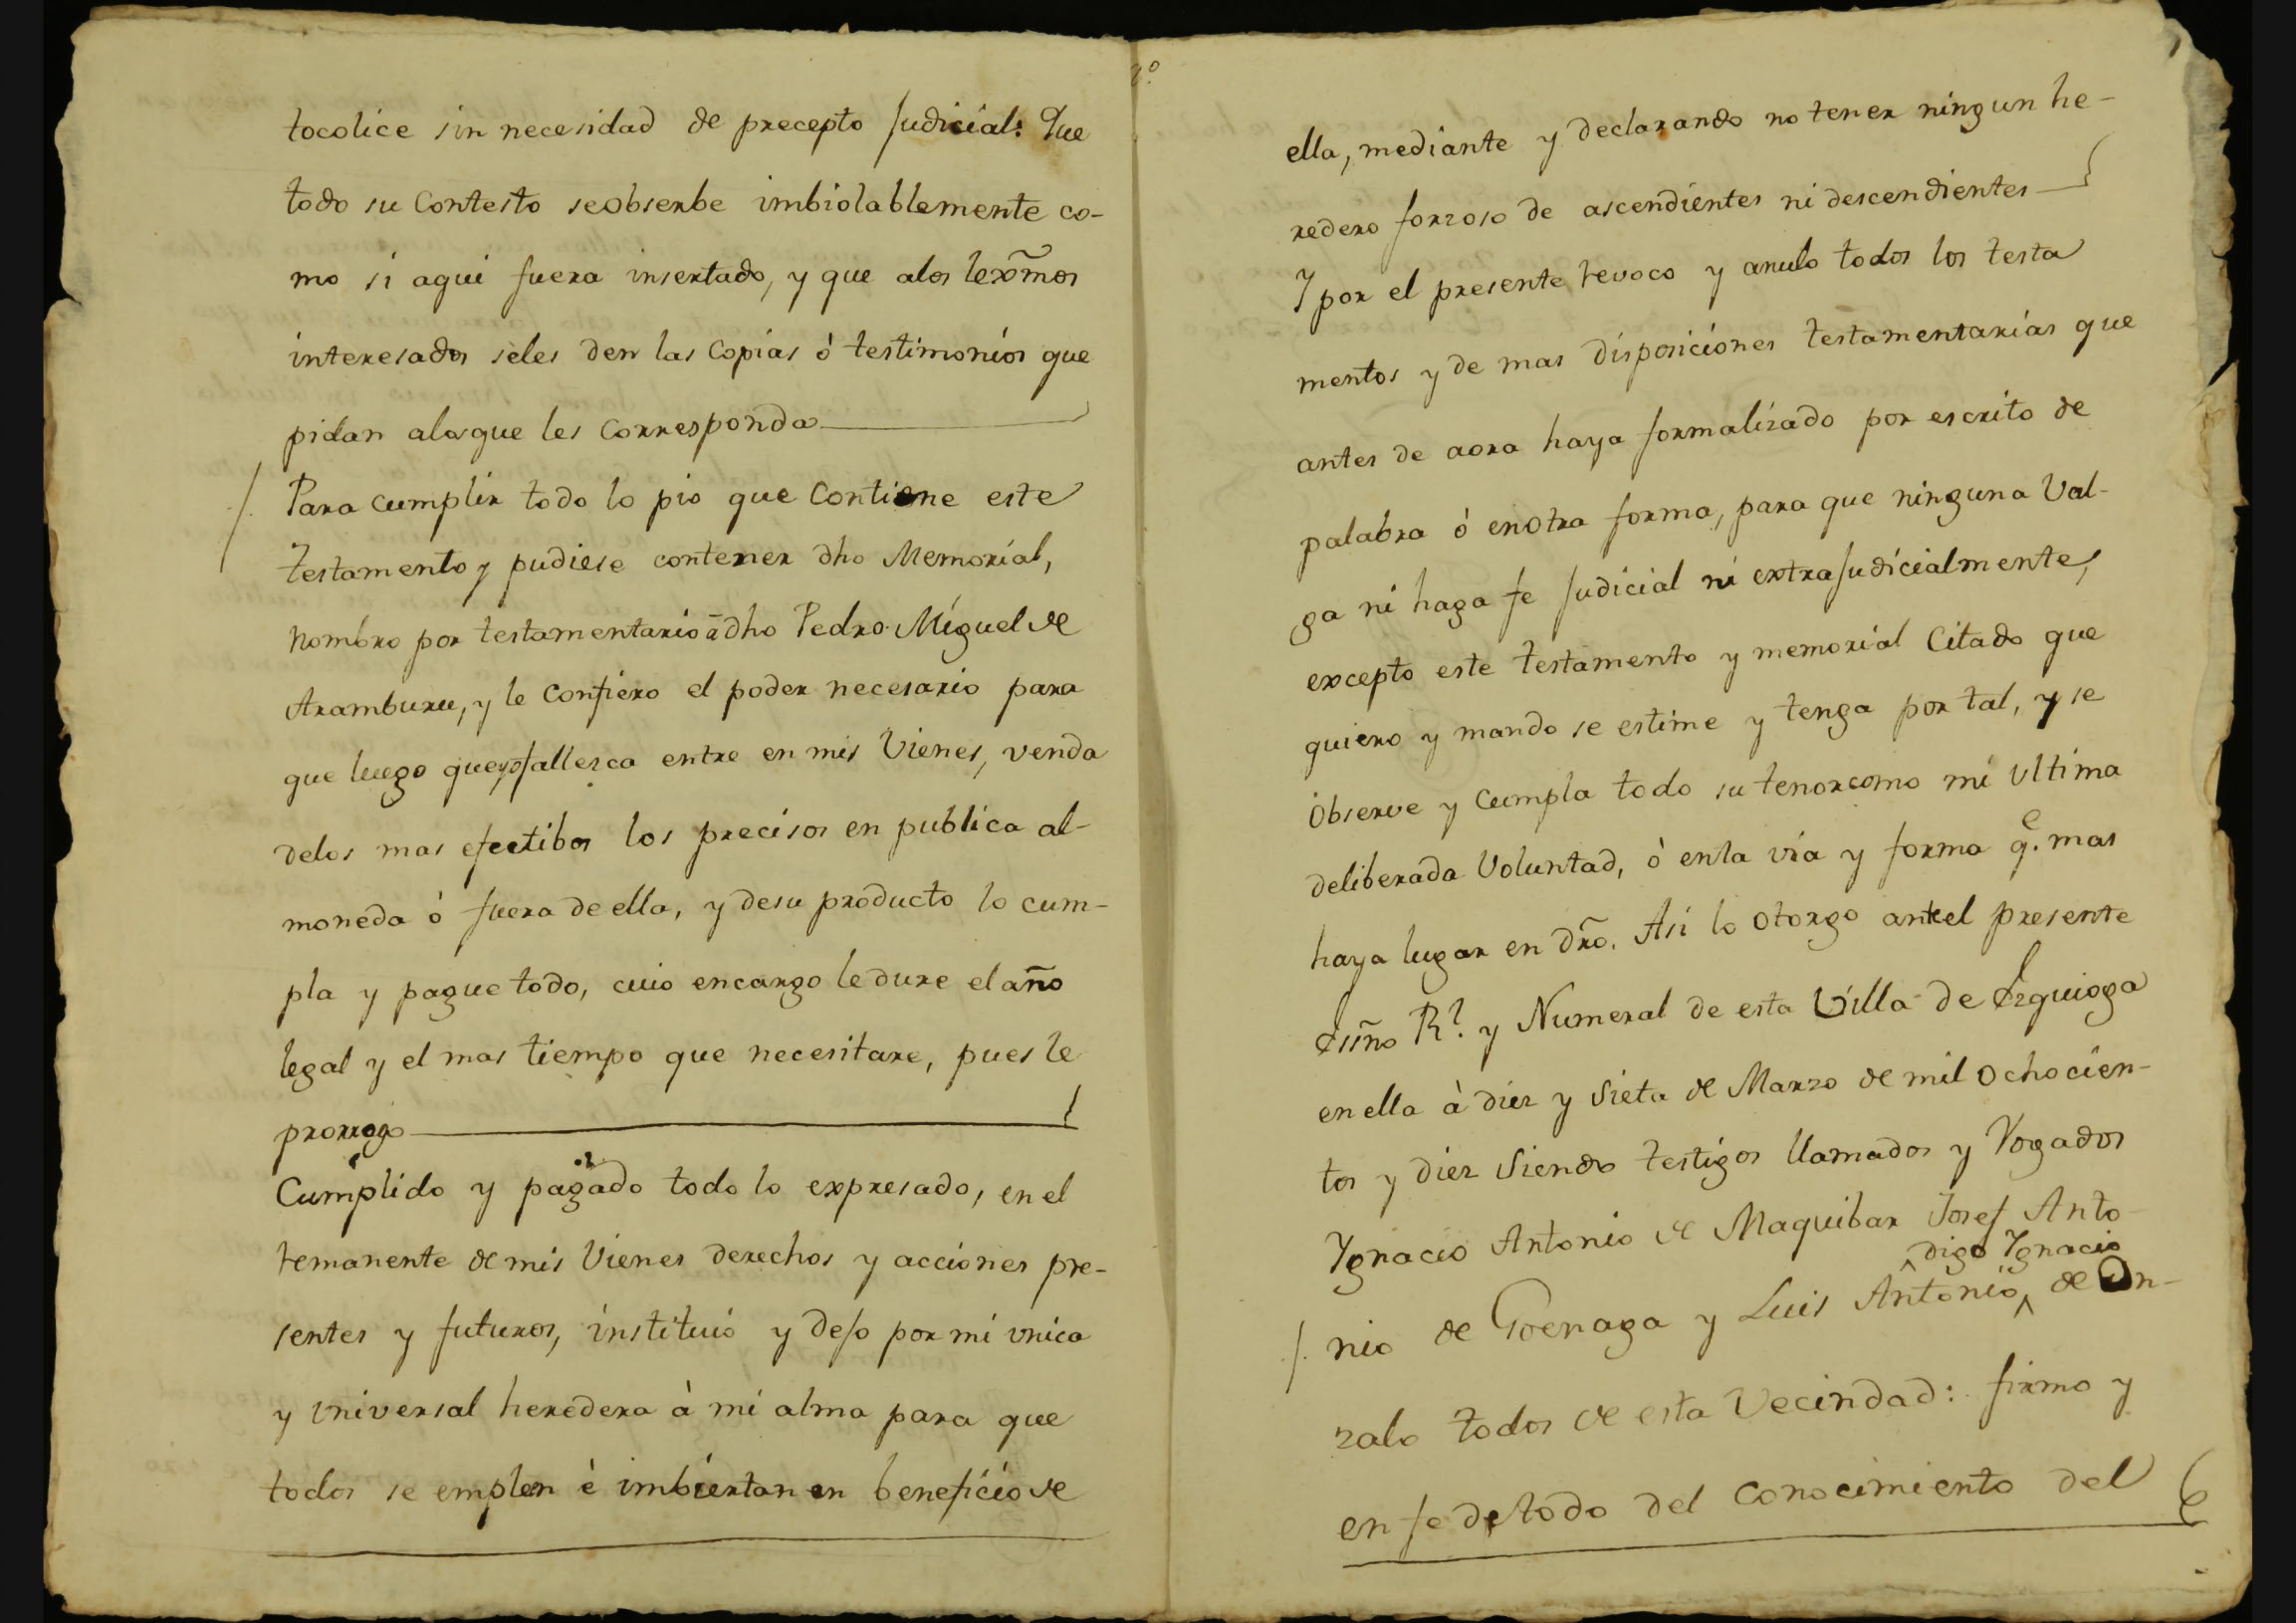 tocolice sin necesidad de precepto Judicial: Que
todo su Contesto seobserbe imbiolablemente co-
mo si aqui fuera insertado, y que alos lexmos
interesados seles den las Copias ó testimonios que
pidan alosque les Corresponda
Para cumplir todo lo pio que Contiene este
testamento y pudiese contener dho Memorial,
nombro por testamentario ā dho Pedro Miguel de
Aramburu, y le Confiero el poder necesario para
que luego queyofallezca entre en mis Vienes, venda
delos mas efectibos los precisos en publica al-
moneda ó fuera de ella, y desu producto lo cum-
pla y pague todo, cuio encargo ledure el año
legal y el mas tiempo que necesitare, pues le
prorrogo
Cumplido y pagado todo lo expresado, en el
remanente de mis Vienes derechos y acciones pre-
sentes y futuros, instituio y dejo por mi vnica
y vniversal heredera à mi alma para que
todos se emplen è imbiertan en beneficio de
ella, mediante y declarando no tener ningun he-
redero forzoso de ascendientes ni descendientes
Y por el presente revoco y anulo todos los testa
mentos y de mas disposiciones testamentarias que
antes de aora haya formalizado por escrito de
palabra ó enotra forma, para que ninguna Val-
ga ni haga fe Judicial ni extraJudicialmente,
excepto este testamento y memorial Citado que
quiero y mando se estime y tenga por tal, y se
Observe y Cumpla todo su tenorcomo mi vltima
deliberada Voluntad, ò enla via y forma q.e mas
haya lugar en dr̃o. Asi lo Otorgo antel presente
Essño Rl. y Numeral de esta Villa de Ezquioga
en ella à diez y Siete de Marzo de mil Ochocien-
tos y diez Siendo testigos llamados y Rogados
Ygnacio Antonio de Maquibar Josef Anto-
digo Ygnacio
nio de Goenaga y Luis Antonio de On-
zalo todos de esta Vecindad: firmo y
en fe detodo del Conocimiento del